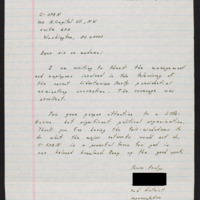 C-SPAN
400 N. Capitol St., NW
Suite 650
Washington, DC 20001
Dear sir or madam:
I am writing to thank the management
and employees involved in the televising of
the recent Libertarian Party presidential
nominating convention. The coverage was
excellent.
You gave proper attention to a little-
known, but significant political organization.
Thank you for having the
do what the major networks could not do.
C-SPAN is a powerful force for good in
our
Keep up the good work.
Yours truly,